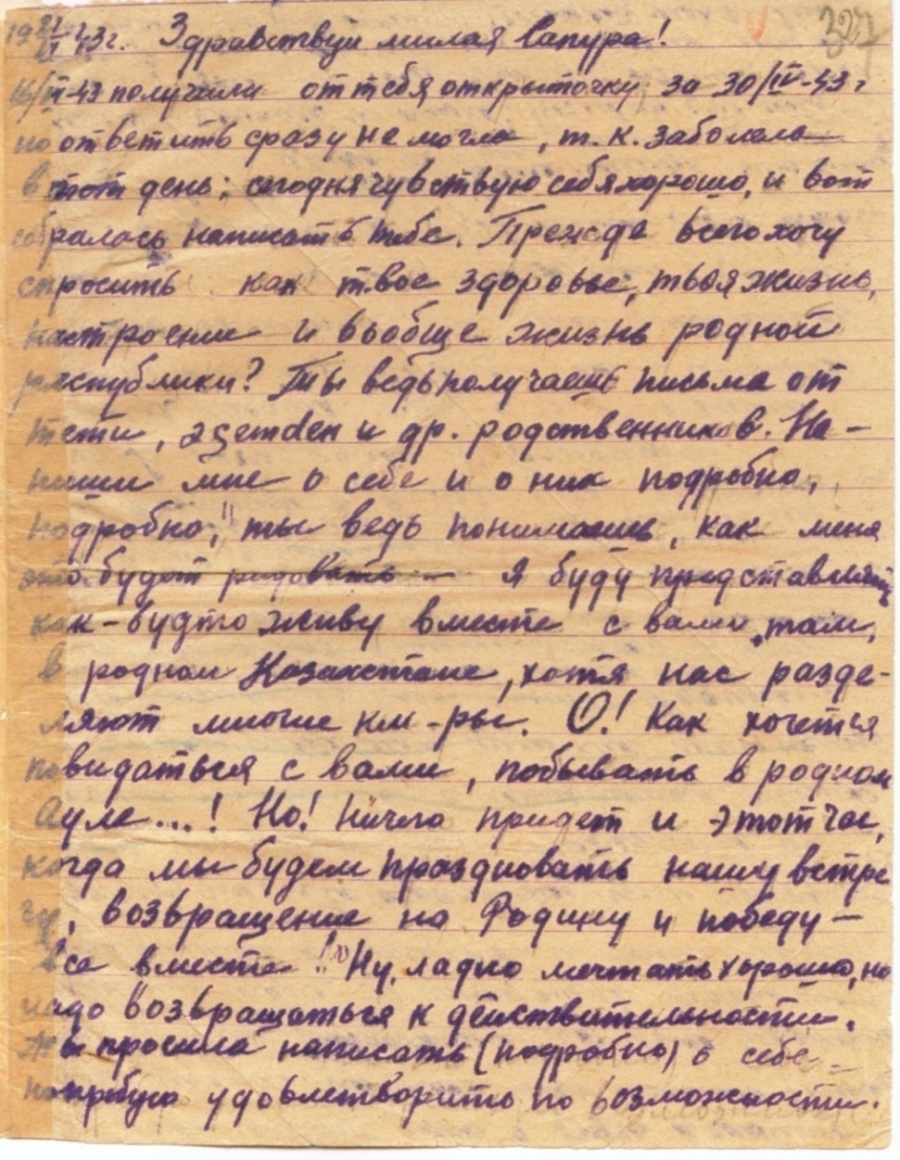 Здравствуй милая Сапура! 327
получила от тебя открыточку за 30/IV-43 г
но ответить сразу не могла, т.к. заболела
в тот день; сегодня чувствую себя хорошо, и вот
собралась написать тебе. Прежде всего хочу
спросить как твое здоровье, твоя жизнь,
настроение и вообще жизнь родной
республики? Ты ведь получаешь письма от
тети, и др. родственников. На-
пиши мне о себе и о них подробно,
подробно," ты ведь понимаешь, как меня
это будет радовать — я буду представлять
как-будто живу вместе с вами, там,
в родном Казахстане, хотя нас разде-
ляют многие км-ры. О! Как хочется
повидаться с вами, побывать в родном
ауле...! Но! Ничего придет и этот час,
когда мы будем праздновать нашу встре
чу, возвращение на Родину и победу —
все вместе! Ну, ладно мечтать хорошо, но
надо возвращаться к действительности.
Ты просила написать (подробно) о себе —
попробую удовлетворить по возможности.